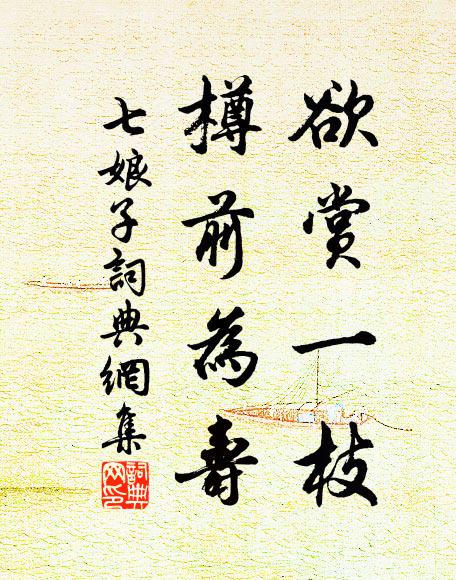 欲賞一枝
樽前為壽
七娘子詞典網集
詞典网印